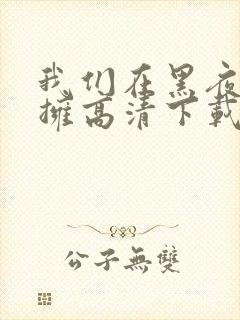 我们在黑夜
擁高清下載
公子無雙